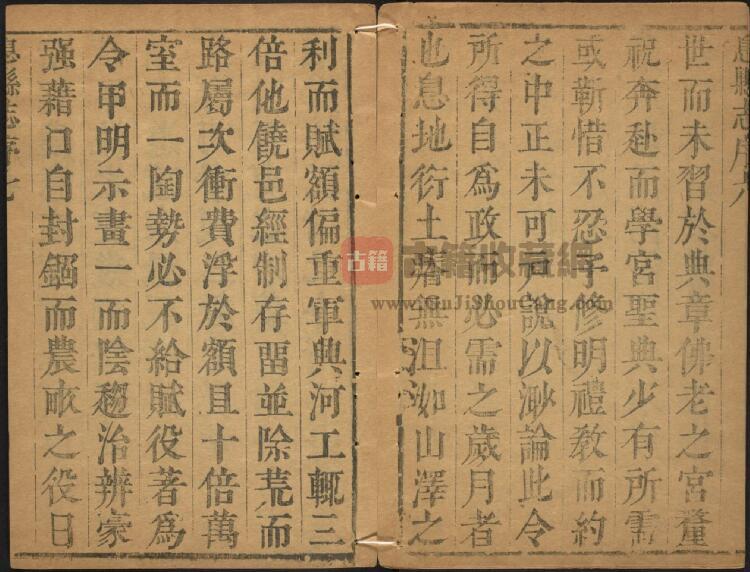 息縣志序六
世而未習於典章佛老之宮釐
祝奔赴而學宮聖典少有所需
或靳惜不忍予修明禮教而約
之中正未可戶說以渺論此令
所得自為政而必需之歲月者
也息地衍土瘠無沮洳山澤之
利而賦額偏重軍興河工輒三
倍他饒邑經制存畱並除荒而
路屬次衝費浮於額且十倍萬
室而一陶勢必不給賦役著為
令甲明示畫一而陰趨治辨豪
强藉口自封錮而農畝之役日
息縣志序七
古籍
古籍收藏網
www.GuJiShouCang.com